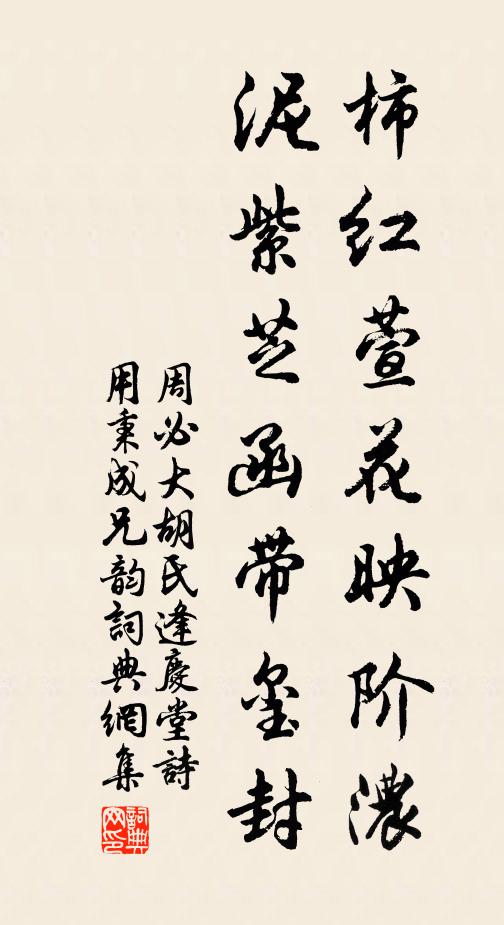 柿红萱花映阶濃
泥紫芝函带玺封
周必大胡氏逢慶堂詩
用秉成兄韵詞典網集
詞典網印